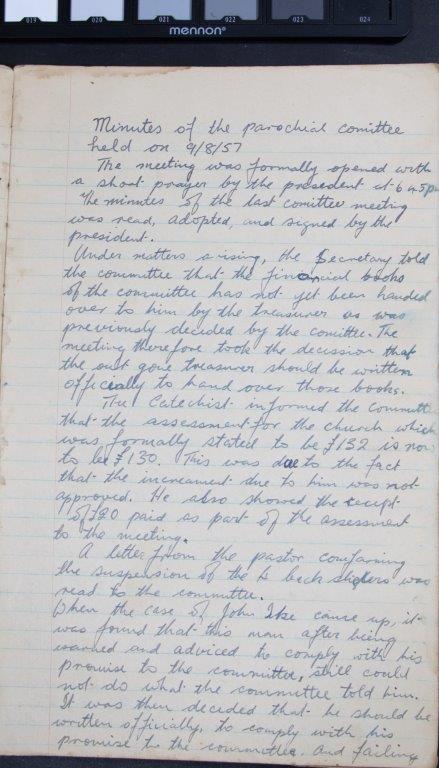 019 020 021 022 023 024
mennon®
Minutes of the parochial comittee
held on 9/8/57
The meeting was formally opened with
a short prayer by the president at 6 45pm
The minutes of the last comittee meeting
was read, adopted, and signed by the
president.
Under matters arising, the Secretary told
the committee that the financial books
of the committee has not yet been handed
over to him by the treasurer as was
previously decided by the comittee. The
meeting therefore took the decission that
the out gone treasurer should be written
officially to hand over those books.
The Catechist informed the committ
that the assessment for the church which
was formally stated to be £132 is now
to be £130. This was due to the fact
that the increament due to him was not
approved. He also showed the receipt
of £20 paid as part of the assessment
to the meeting.
A letter from the pastor comfirming
the suspension of the 4 back sliders was
read to the committee.
When the case of John Ike came up, it
was found that this man after being
warned and adviced to comply with his
promise to the committee, still could
not do what the committee told him.
It was then decided that he should be
written officially, to comply with his
promise to the committee. And failing